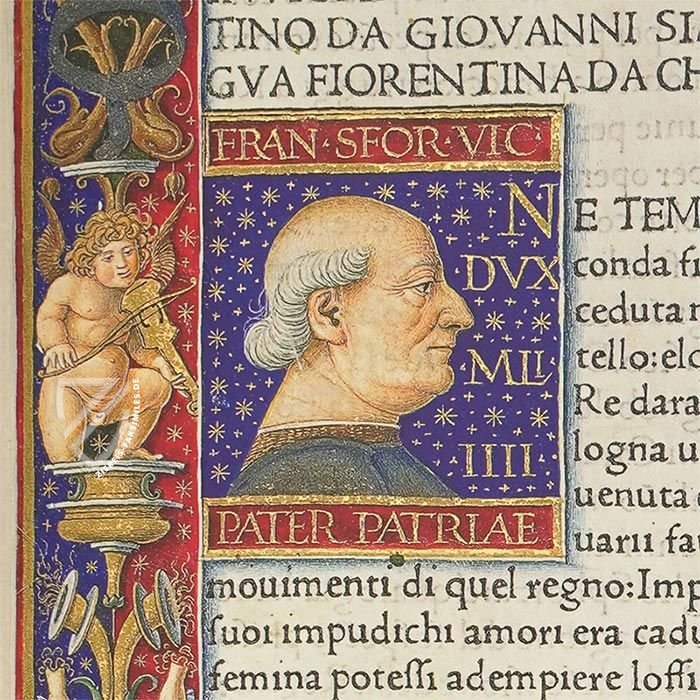 TINO DA GIOVANNI SI
GVA FIORENTINA DA CH
FRAN · SFOR · VIC ·
N
DVX
MLI
IIII
PATER PATRIAE
E TEM
conda fi
ceduta
tello: elc
Re dara
logna u
uenuta
uarii fau
mouimenti di quel regno: Imp
suoi impudichi amori era cadu
femina potessi adempiere loffi